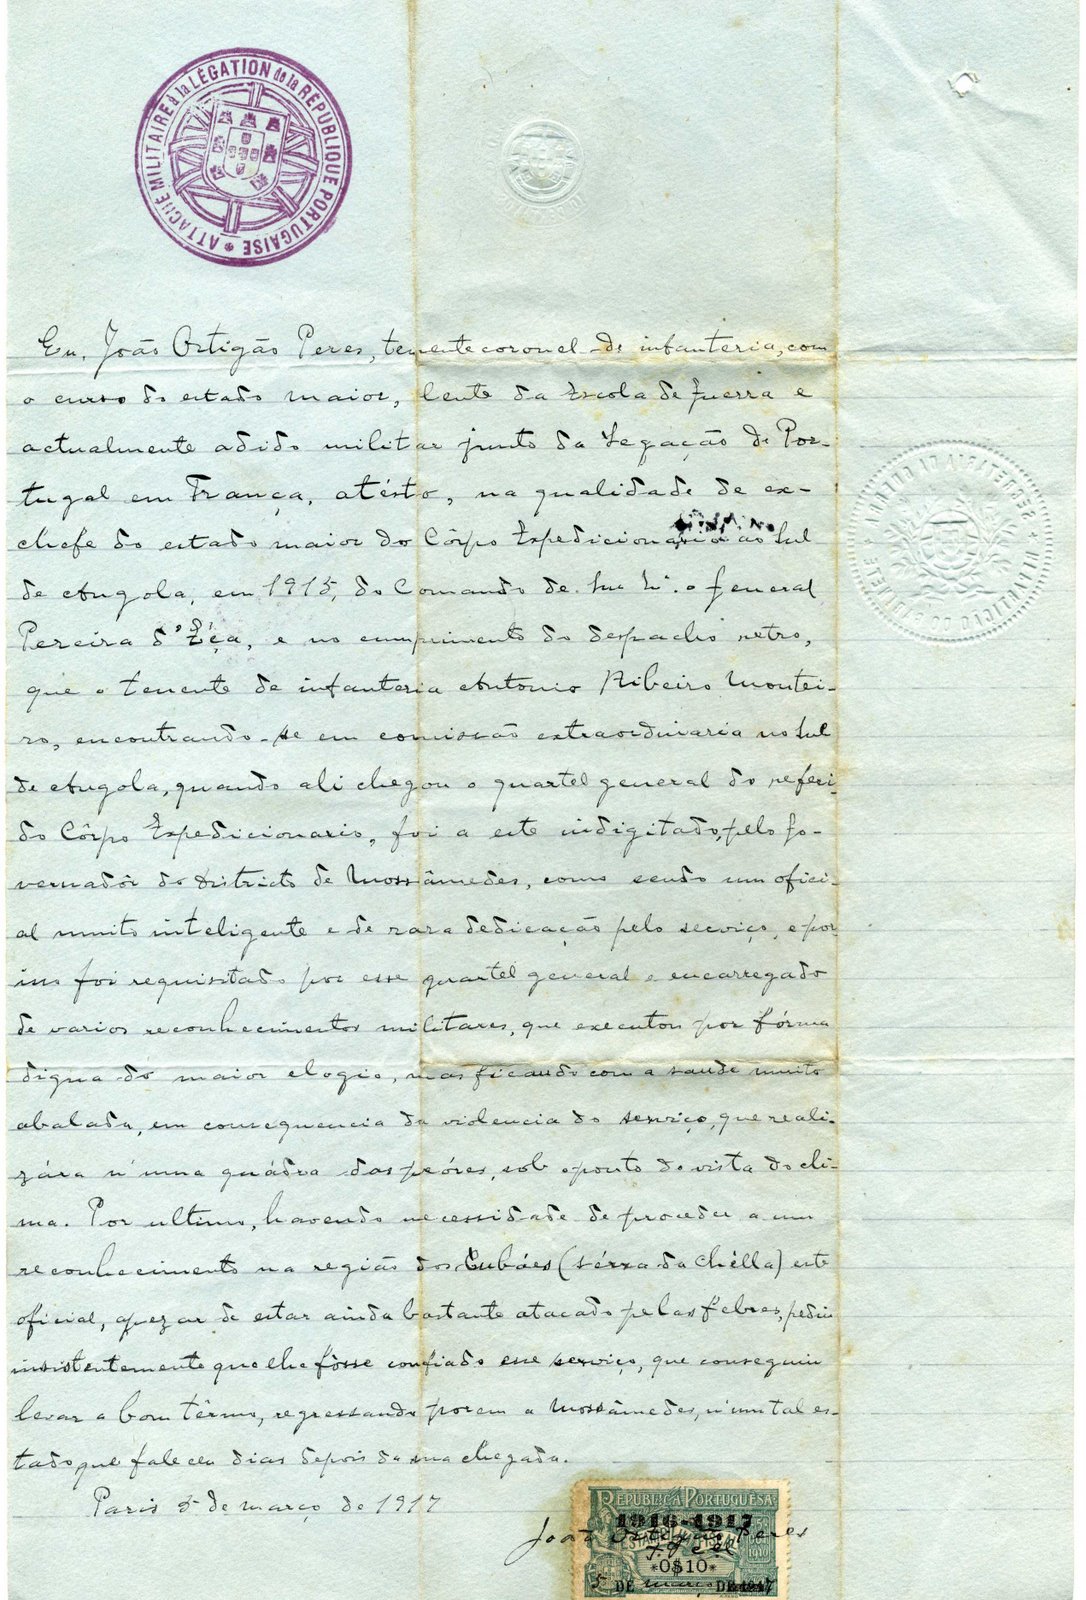 ATTACHÉ MILITAIRE à la LÉGATION de la RÉPUBLIQUE PORTUGAISE *
Eu, João Ortigão Peres, tenente coronel de infanteria, com
o curso do estado maior, lente da Escola de Guerra e
actualmente adido militar junto da Legação de Por-
tugal em França, atésto, na qualidade de ex-
chefe do estado maior do Côrpo Expedicionario ao Sul
de Angola, em 1915, do Comando de o General
Pereira d'Eça, e no cumprimento do despacho retro,
que o tenente de infanteria Antonio Ribeiro Montei-
ro, encontrando-se em comissão extraordinaria no Sul
de Angola, quando ali chegou o quartel general do referi-
do Côrpo Expedicionario, foi a este indigitado, pelo Go-
vernadôr do Districto de Mossâmedes, como sendo um ofici-
al muito inteligente e de rara dedicação pelo serviço, e por
isso foi requisitado por esse quartel general e encarregado
de varios reconhecimentos militares, que executou por fórma
digna do maior elogio, mas ficando com a saude muito
abalada, em consequencia da violencia do serviço, que reali-
zára n'uma quádra das peóres, sob o ponto de vista do cli-
ma. Por ultimo, havendo necessidade de proceder a um
reconhecimento na região dos Cubáes (sérra da Chélla) este
oficial, apezar de estar ainda bastante atacado pelas febres, pediu
insistentemente que lhe fôsse confiado esse serviço, que conseguiu
levar a bom têrmo, regressando porem a Mossâmedes, n'um tal es-
tado que faleceu dias depois da sua chegada.
Paris 5 de março de 1917
João Ortigão Peres
REPUBLICA PORTUGUESA
1916-1917
*0$10*
5 DE março DE 1917